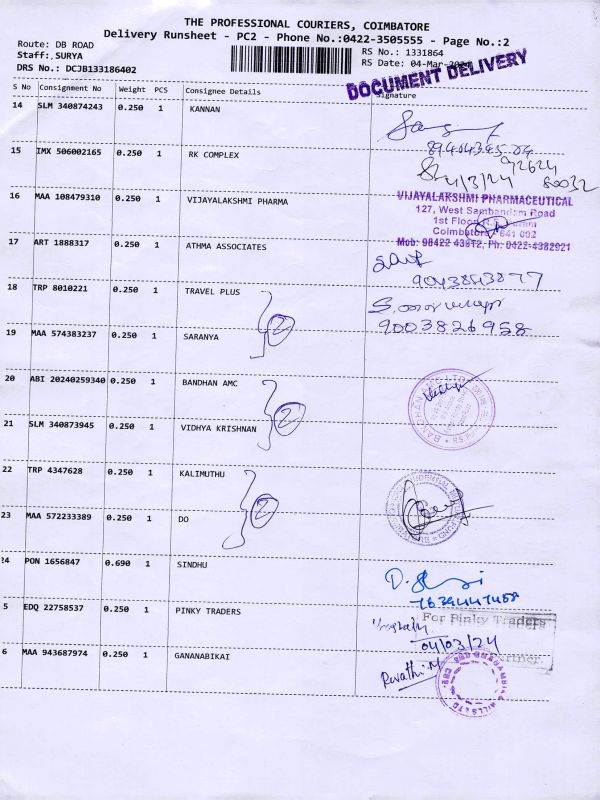 THE PROFESSIONAL COURIERS, COIMBATORE
Delivery Runsheet - PC2 - Phone No.:0422-3505555 - Page No.:2
Route: DB ROAD
RS No.: 1331864
Staff: SURYA
RS Date: 04-Mar-
DRS No.: DCJB133186402
DOCUMENT DELIVERY
S No Consignment No Weight PCS Consignee Details Signature
14 SLM 340874243 0.250 1 KANNAN
15 IMX 506002165 0.250 1 RK COMPLEX
92624
4/3/24 80032
16 MAA 108479310 0.250 1 VIJAYALAKSHMI PHARMA
VIJAYALAKSHMI PHARMACEUTICAL
127, West Sambandam Road
1st Floor
Coimbatore - 641 002
Mob: 98422 43812, Ph: 0422-4382921
17 ART 1888317 0.250 1 ATHMA ASSOCIATES
9043843877
18 TRP 8010221 0.250 1 TRAVEL PLUS
2
9003826958
19 MAA 574383237 0.250 1 SARANYA
20 ABI 20240259340 0.250 1 BANDHAN AMC
2
21 SLM 340873945 0.250 1 VIDHYA KRISHNAN
22 TRP 4347628 0.250 1 KALIMUTHU
2
23 MAA 572233389 0.250 1 DO
24 PON 1656847 0.690 1 SINDHU
7639447458
5 EDQ 22758537 0.250 1 PINKY TRADERS
For Pinky Traders
04/03/24
Partner
6 MAA 943687974 0.250 1 GANANABIKAI
Revathi.M